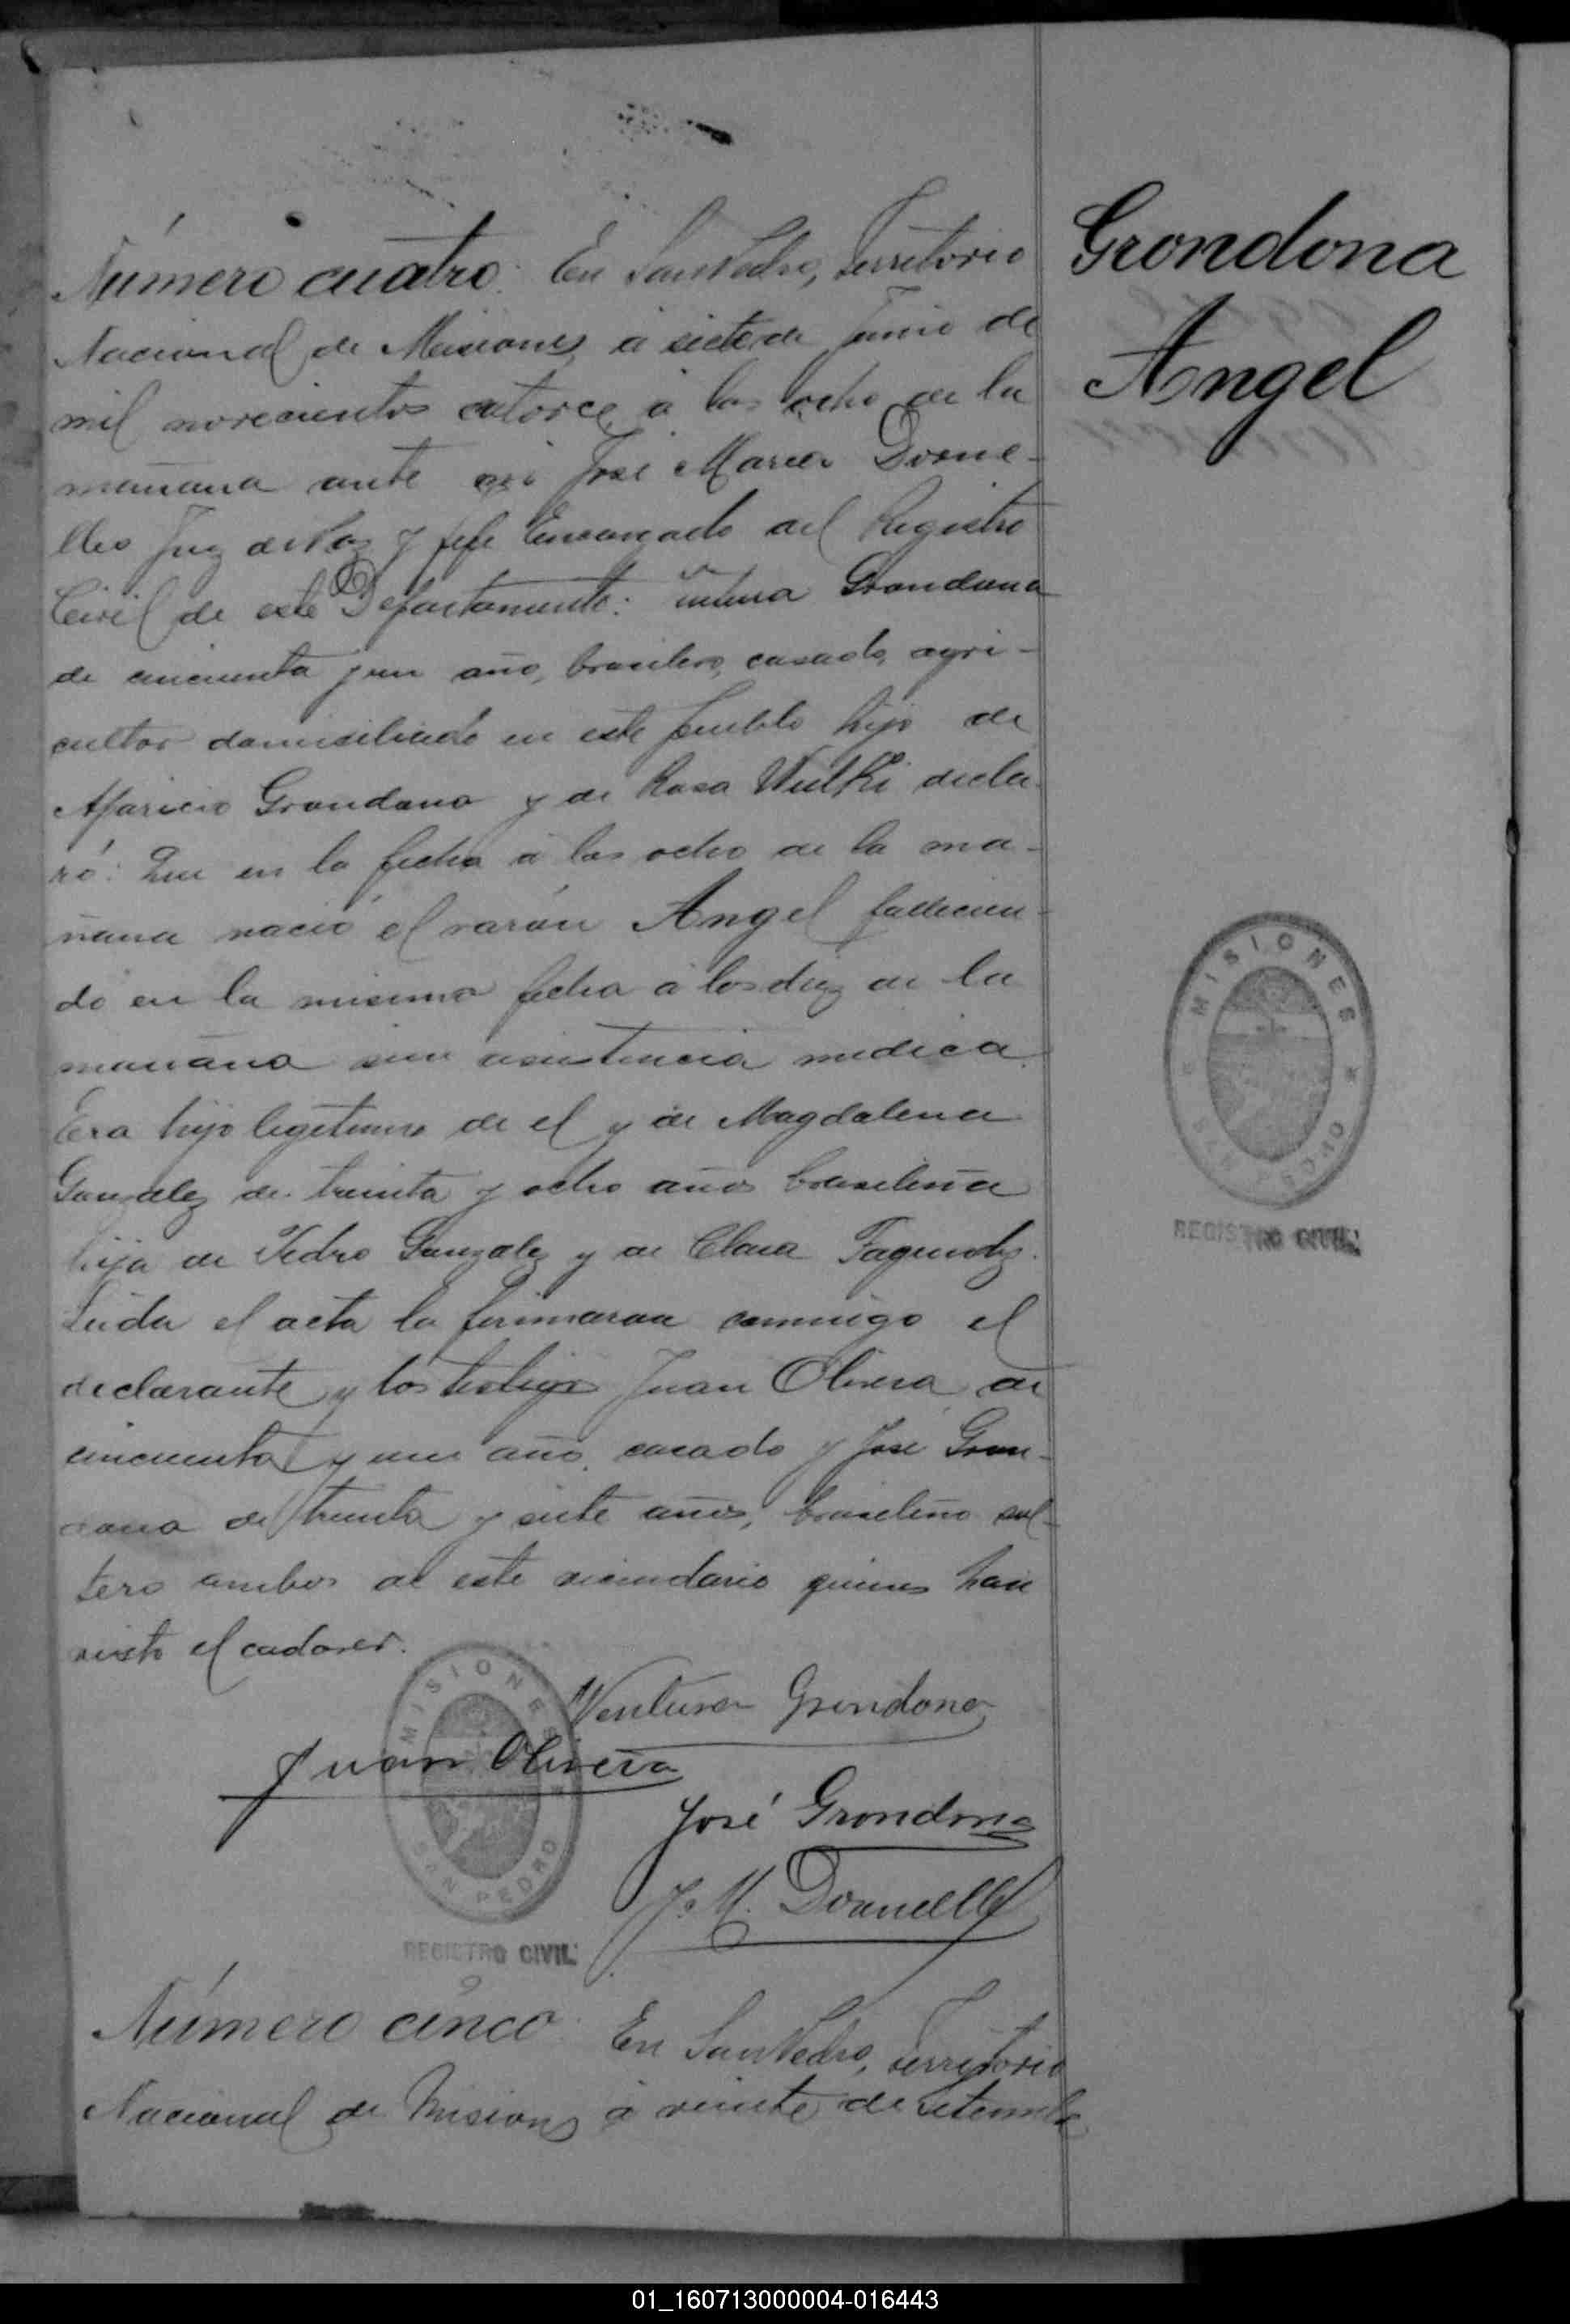 Número cuatro. En San Pedro, Territorio
Nacional de Misiones á siete de Junio de
mil novecientos catorce á las ocho de la
mañana ante mi José Maria Dorne-
lles Juez de Paz y Jefe Encargado del Registro
Civil de este Departamento: Grondona
de cincuenta y un año, brasilero, casado, agri-
cultor domisiliado en este pueblo hijo de
Aparicio Grondona y de Rosa decla-
ró: Que en la fecha á las ocho de la ma-
ñana nació el varón Angel fallecien-
do en la misma fecha á las diez de la
mañana sin asistencia medica.
Era hijo legitimo de el y de Magdalena
Gonzalez de treinta y ocho años brasileña
hija de Pedro Gonzalez y de Clara Fagundez.
Leida el acta la firmaron conmigo el
declarante y los testigos Juan Olivera de
cincuenta y un año, casado y José Gron-
dona de treinta y siete años, brasileño sol-
tero ambos de este vecindario quienes han
visto el cadaver.
Ventura Grondona
Juan Olivera
José Grondona
J. M. Dornelles
MISIONES
SAN PEDRO
REGISTRO CIVIL
Número cinco. En San Pedro, Territorio
Nacional de Misiones á veinte de Setiembre
Grondona
Angel
MISIONES
SAN PEDRO
REGISTRO CIVIL
01_160713000004-016443